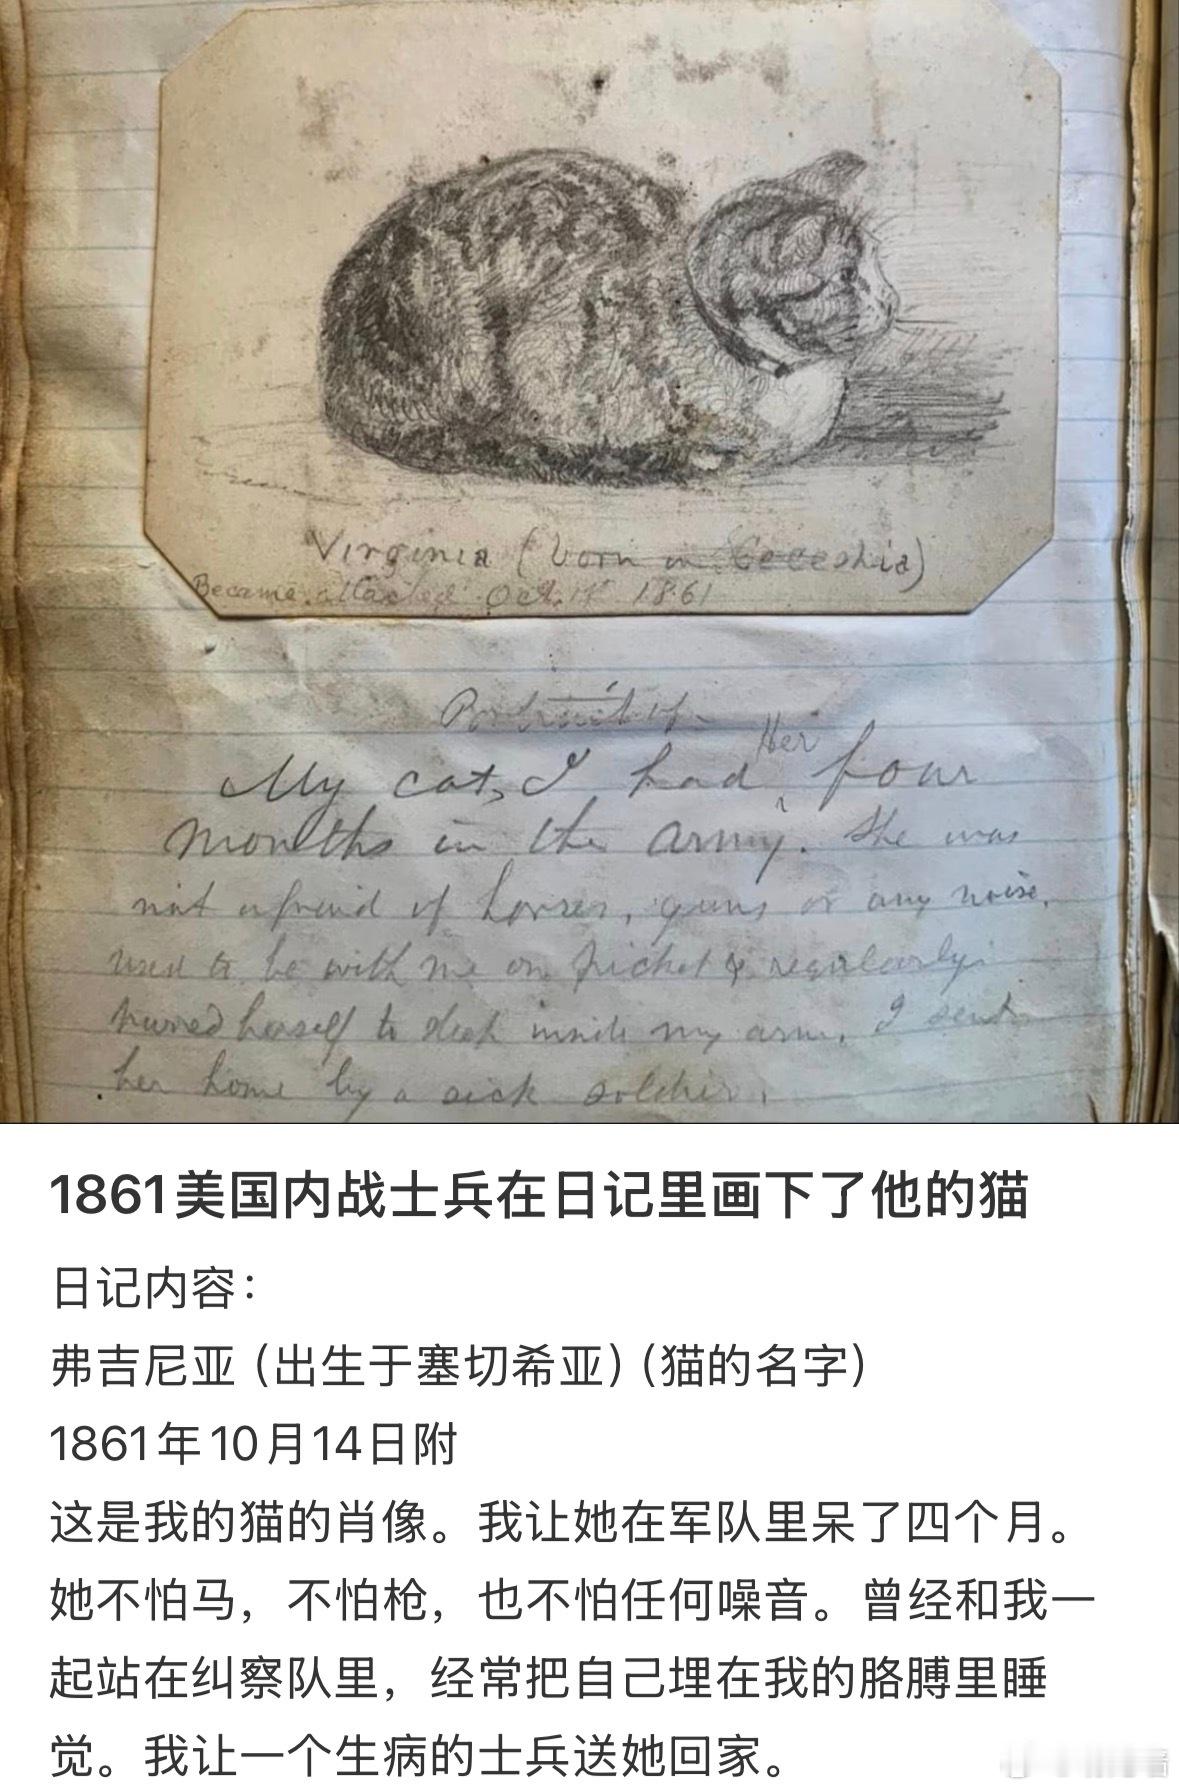 Virginia (born in Seceshia)
Became attached Oct. 14 1861
Portrait of
My cat, I had Her four
months in the army. She was
not afraid of horses, guns or any noise,
used to be with me on picket & regularly
purred herself to sleep inside my arm. I sent
her home by a sick soldier.
1861美国内战士兵在日记里画下了他的猫
日记内容：
弗吉尼亚（出生于塞切希亚）（猫的名字）
1861年10月14日附
这是我的猫的肖像。我让她在军队里呆了四个月。
她不怕马，不怕枪，也不怕任何噪音。曾经和我一
起站在纠察队里，经常把自己埋在我的胳膊里睡
觉。我让一个生病的士兵送她回家。